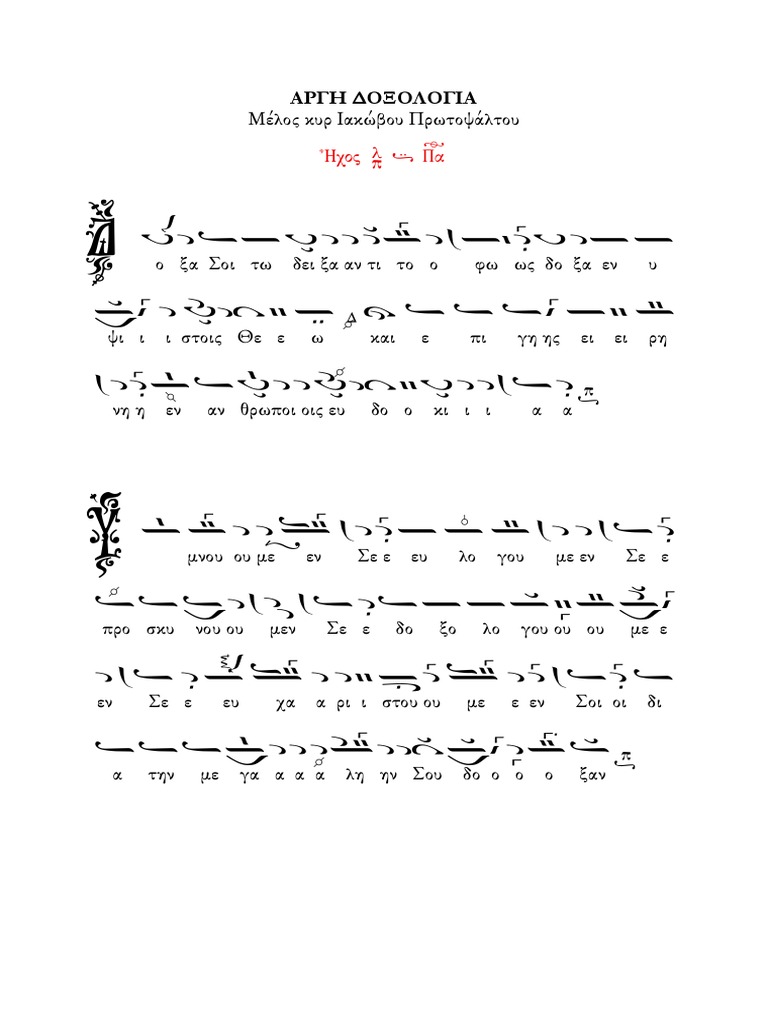 ΑΡΓΗ ΔΟΞΟΛΟΓΙΑ
Μέλος κυρ Ιακώβου Πρωτοψάλτου
Ἦχος λ π Πα
Δ ο ξα Σοι τω δει ξα αν τι το ο φω ως δο ξα εν υ
ψι ι ι στοις Θε ε ω Δ και ε πι γη ης ει ει ρη
νη η εν αν θρωποι οις ευ δο ο κι ι ι α α π
Υ μνου ου με εν Σε ε ευ λο γου με εν Σε ε
προ σκυ νου ου μεν Σε ε δο ξο λο γου ου ου με ε
εν Σε ε ευ χα α ρι ι στου ου με ε εν Σοι οι δι
α την με γα α α α λη ην Σου δο ο ο ο ξαν π